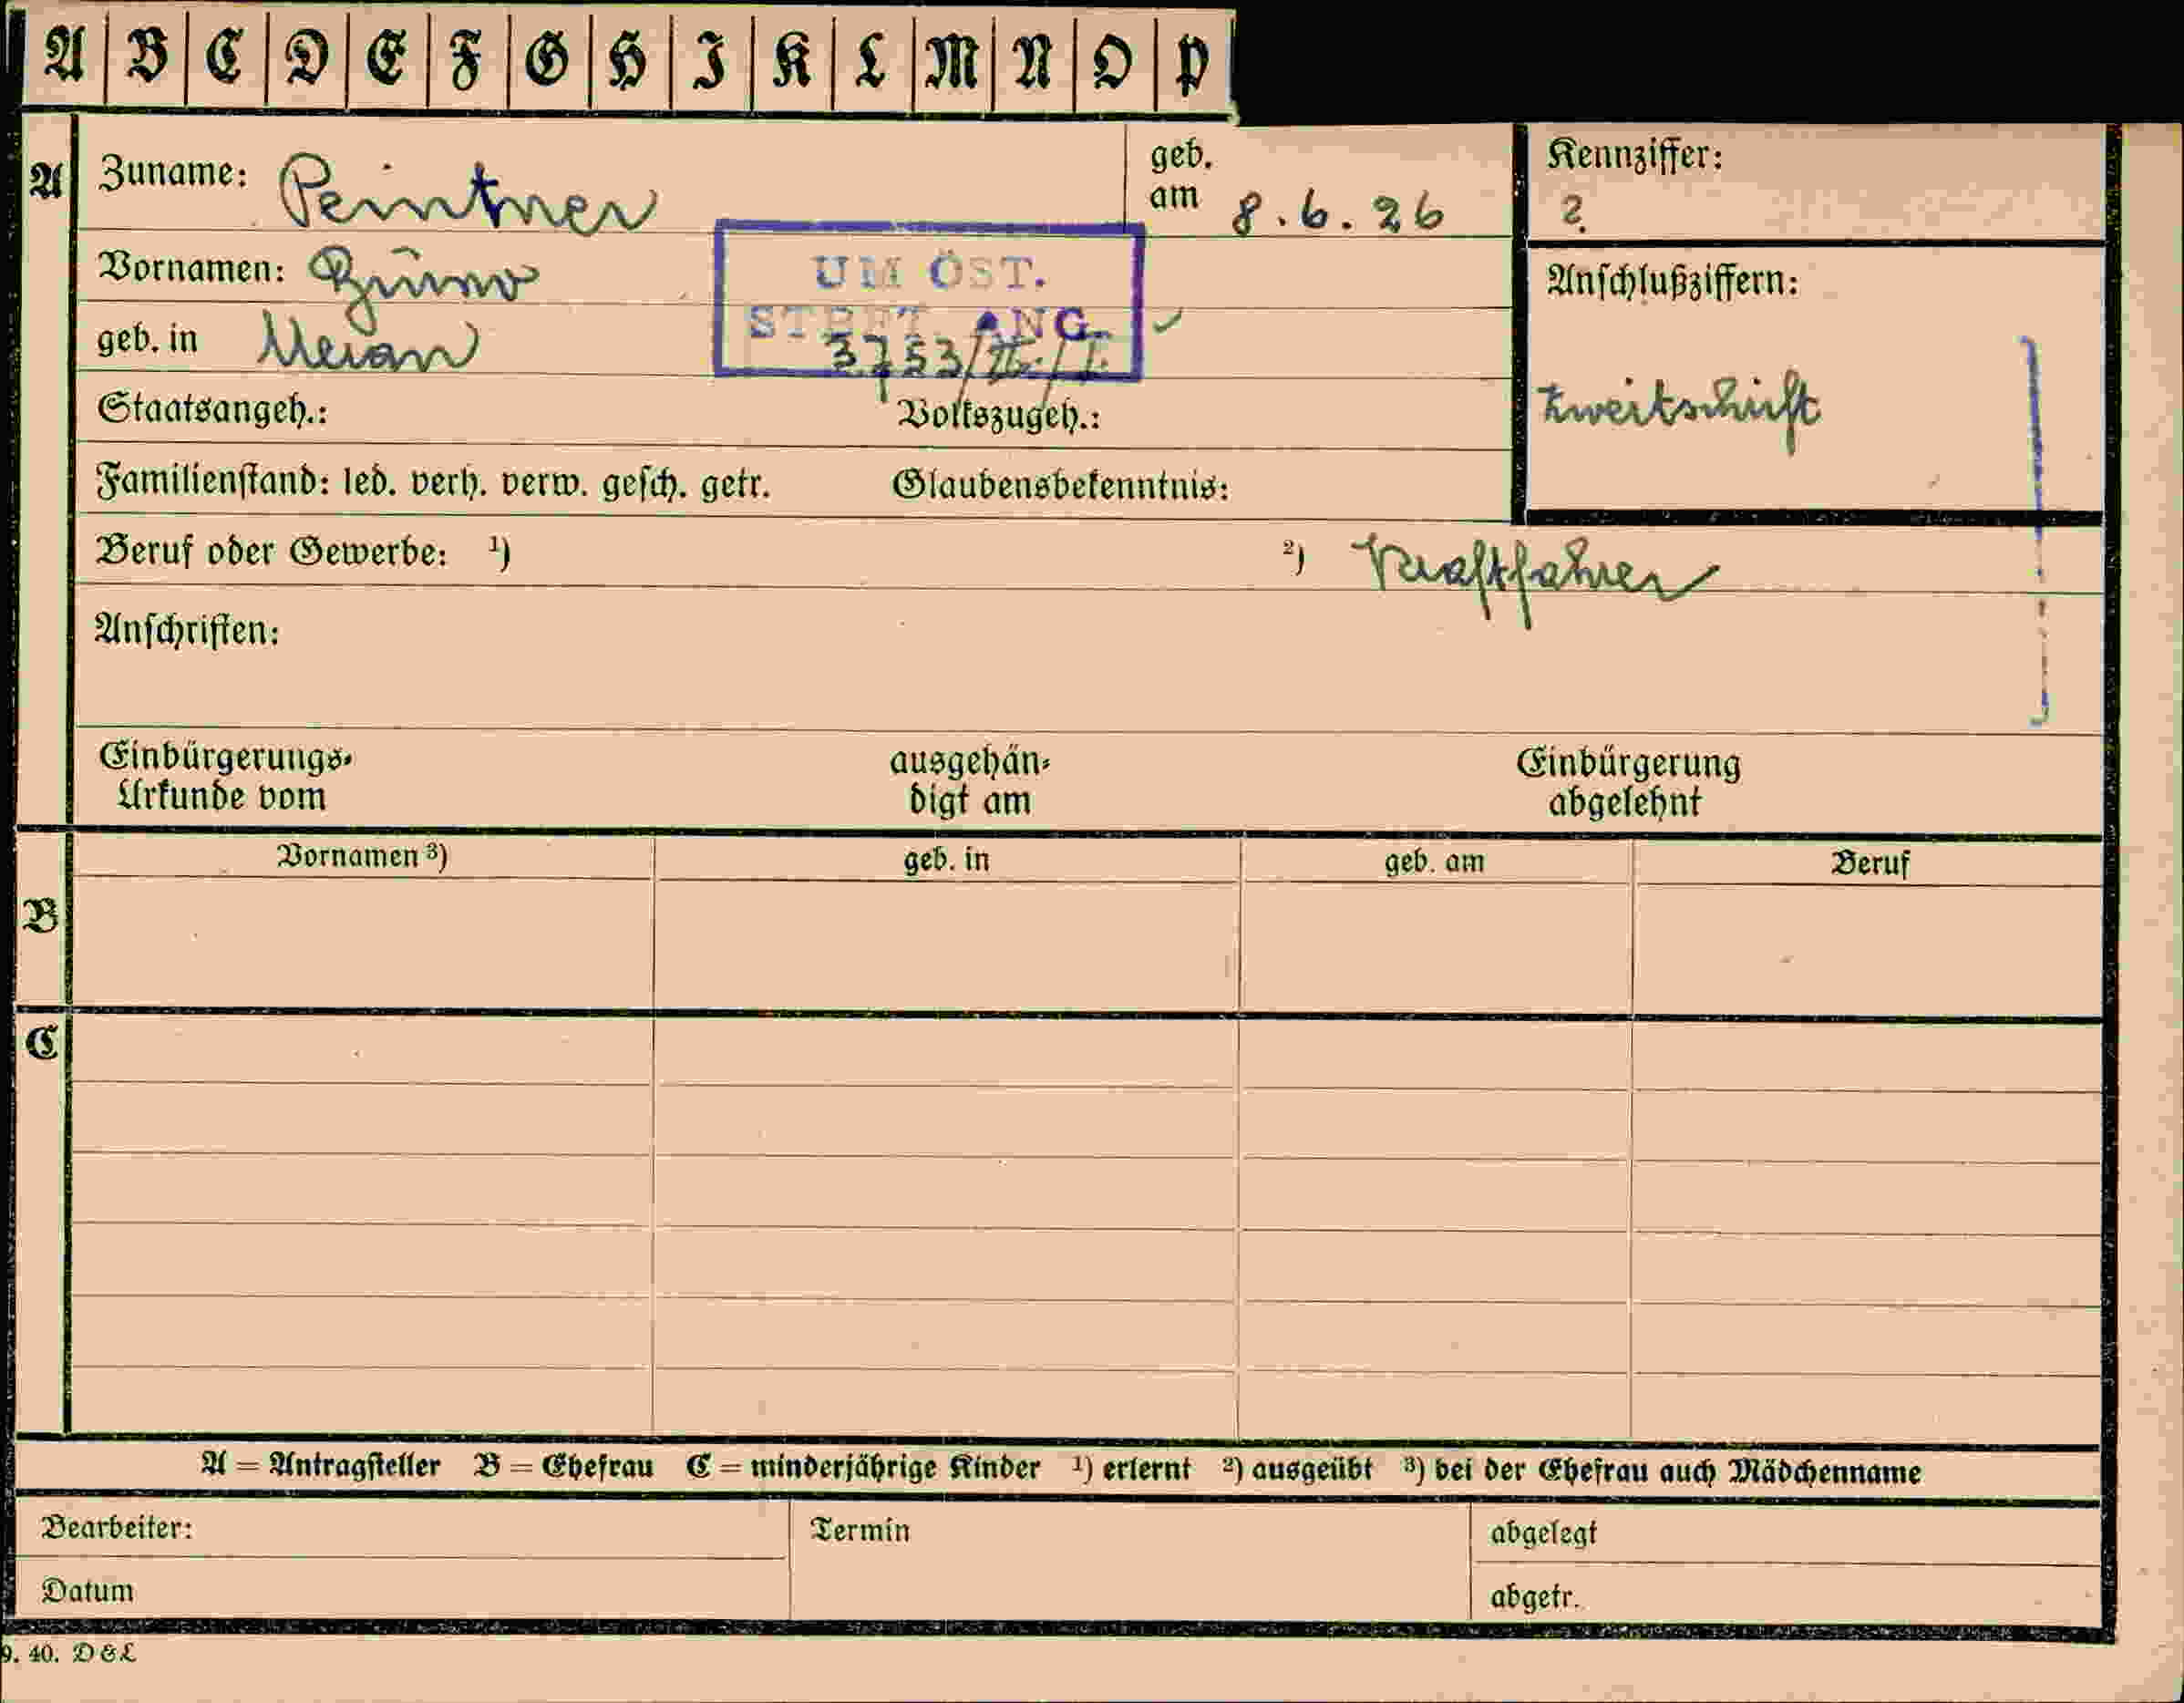 A B C D E F G H I K L M N O P
A Zuname: Peintner geb. am 8.6.26 Kennziffer: ?
Vornamen: Bruno
UM ÖST.
STBFT. ANG.
3753/II./
geb. in Meran
Anschlußziffern:
Zweitschrift
Staatsangeh.: Volkszugeh.:
Familienstand: led. verh. verw. gesch. getr. Glaubensbekenntnis:
Beruf oder Gewerbe: ¹) ²) Kraftfahrer
Anschriften:
Einbürgerungs- ausgehän- Einbürgerung
Urkunde vom digt am abgelehnt
Vornamen ³) geb. in geb. am Beruf
B
C
A = Antragsteller B = Ehefrau C = minderjährige Kinder ¹) erlernt ²) ausgeübt ³) bei der Ehefrau auch Mädchenname
Bearbeiter: Termin abgelegt
Datum abgetr.
9. 40. D & L